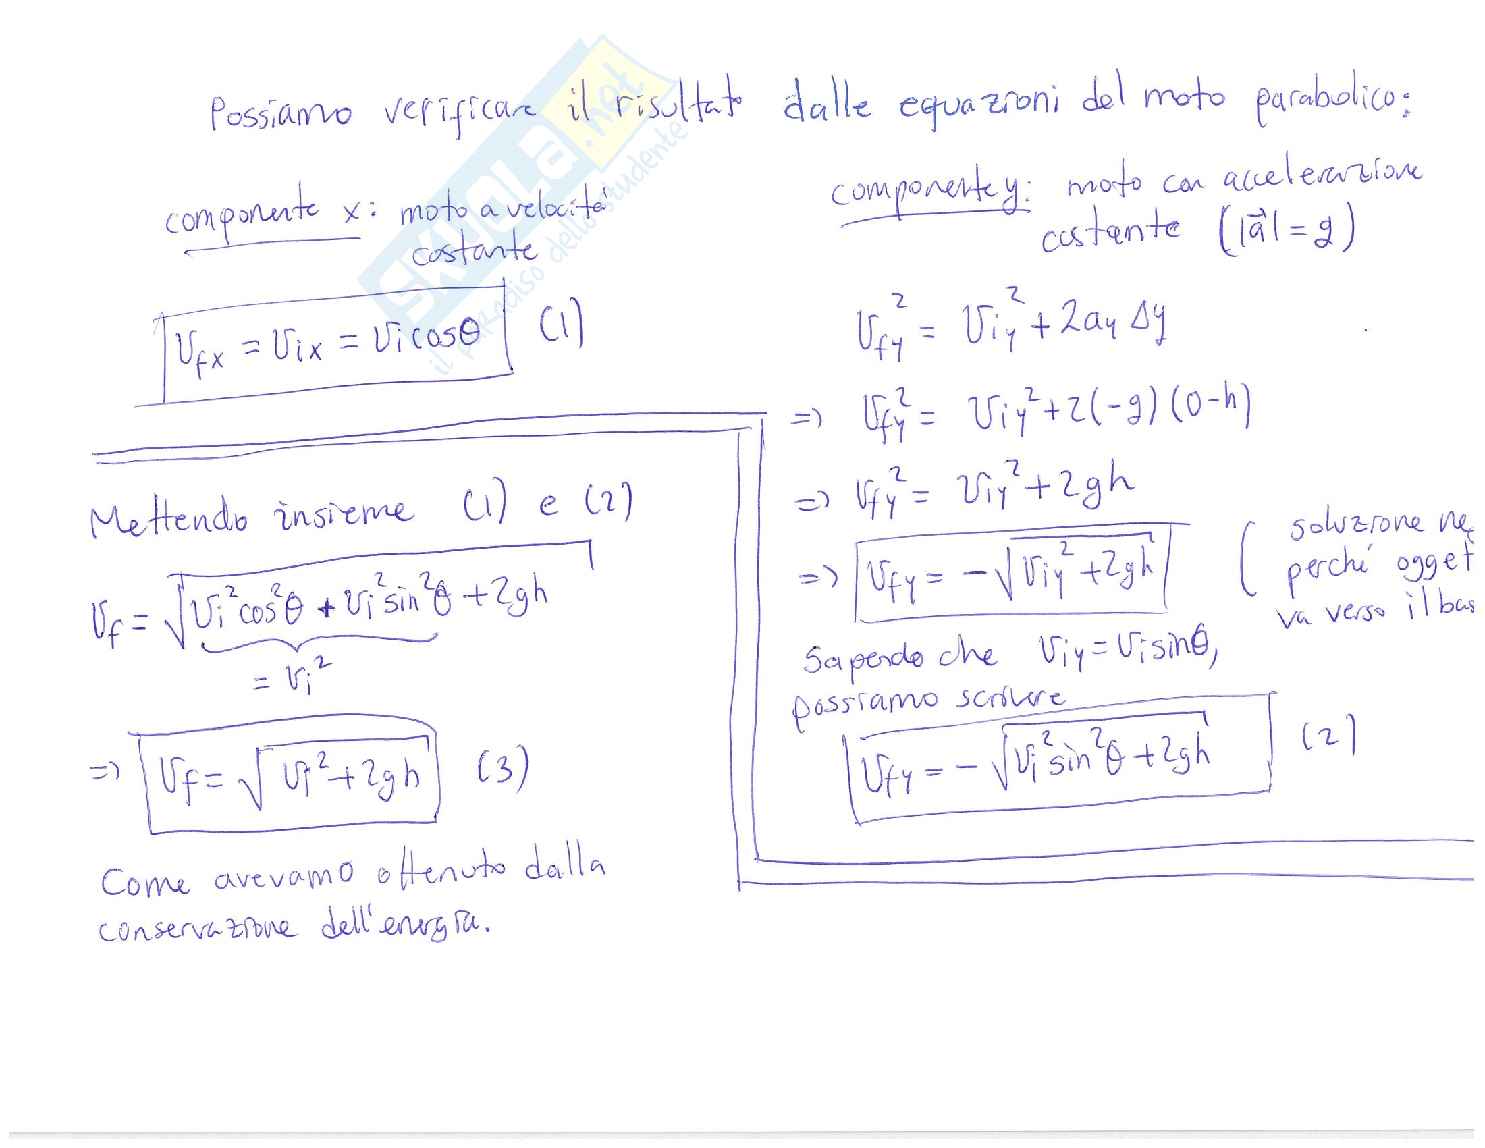 Possiamo verificare il risultato dalle equazioni del moto parabolico:
componente x: moto a velocità
costante
v_fx = v_ix = v_i cosθ (1)
componente y: moto con accelerazione
costante (|a⃗| = g)
v_fy² = v_iy² + 2a_y Δy
=> v_fy² = v_iy² + 2(-g)(0-h)
=> v_fy² = v_iy² + 2gh
=> v_fy = -√(v_iy² + 2gh)
( soluzione ne
perché ogget
va verso il bas
Sapendo che v_iy = v_i sinθ,
possiamo scrivere
v_fy = -√(v_i² sin²θ + 2gh) (2)
Mettendo insieme (1) e (2)
v_f = √(v_i² cos²θ + v_i² sin²θ + 2gh)
= v_i²
=> v_f = √(v_i² + 2gh) (3)
Come avevamo ottenuto dalla
conservazione dell'energia.
SKUOLA.net
il paradiso dello studente